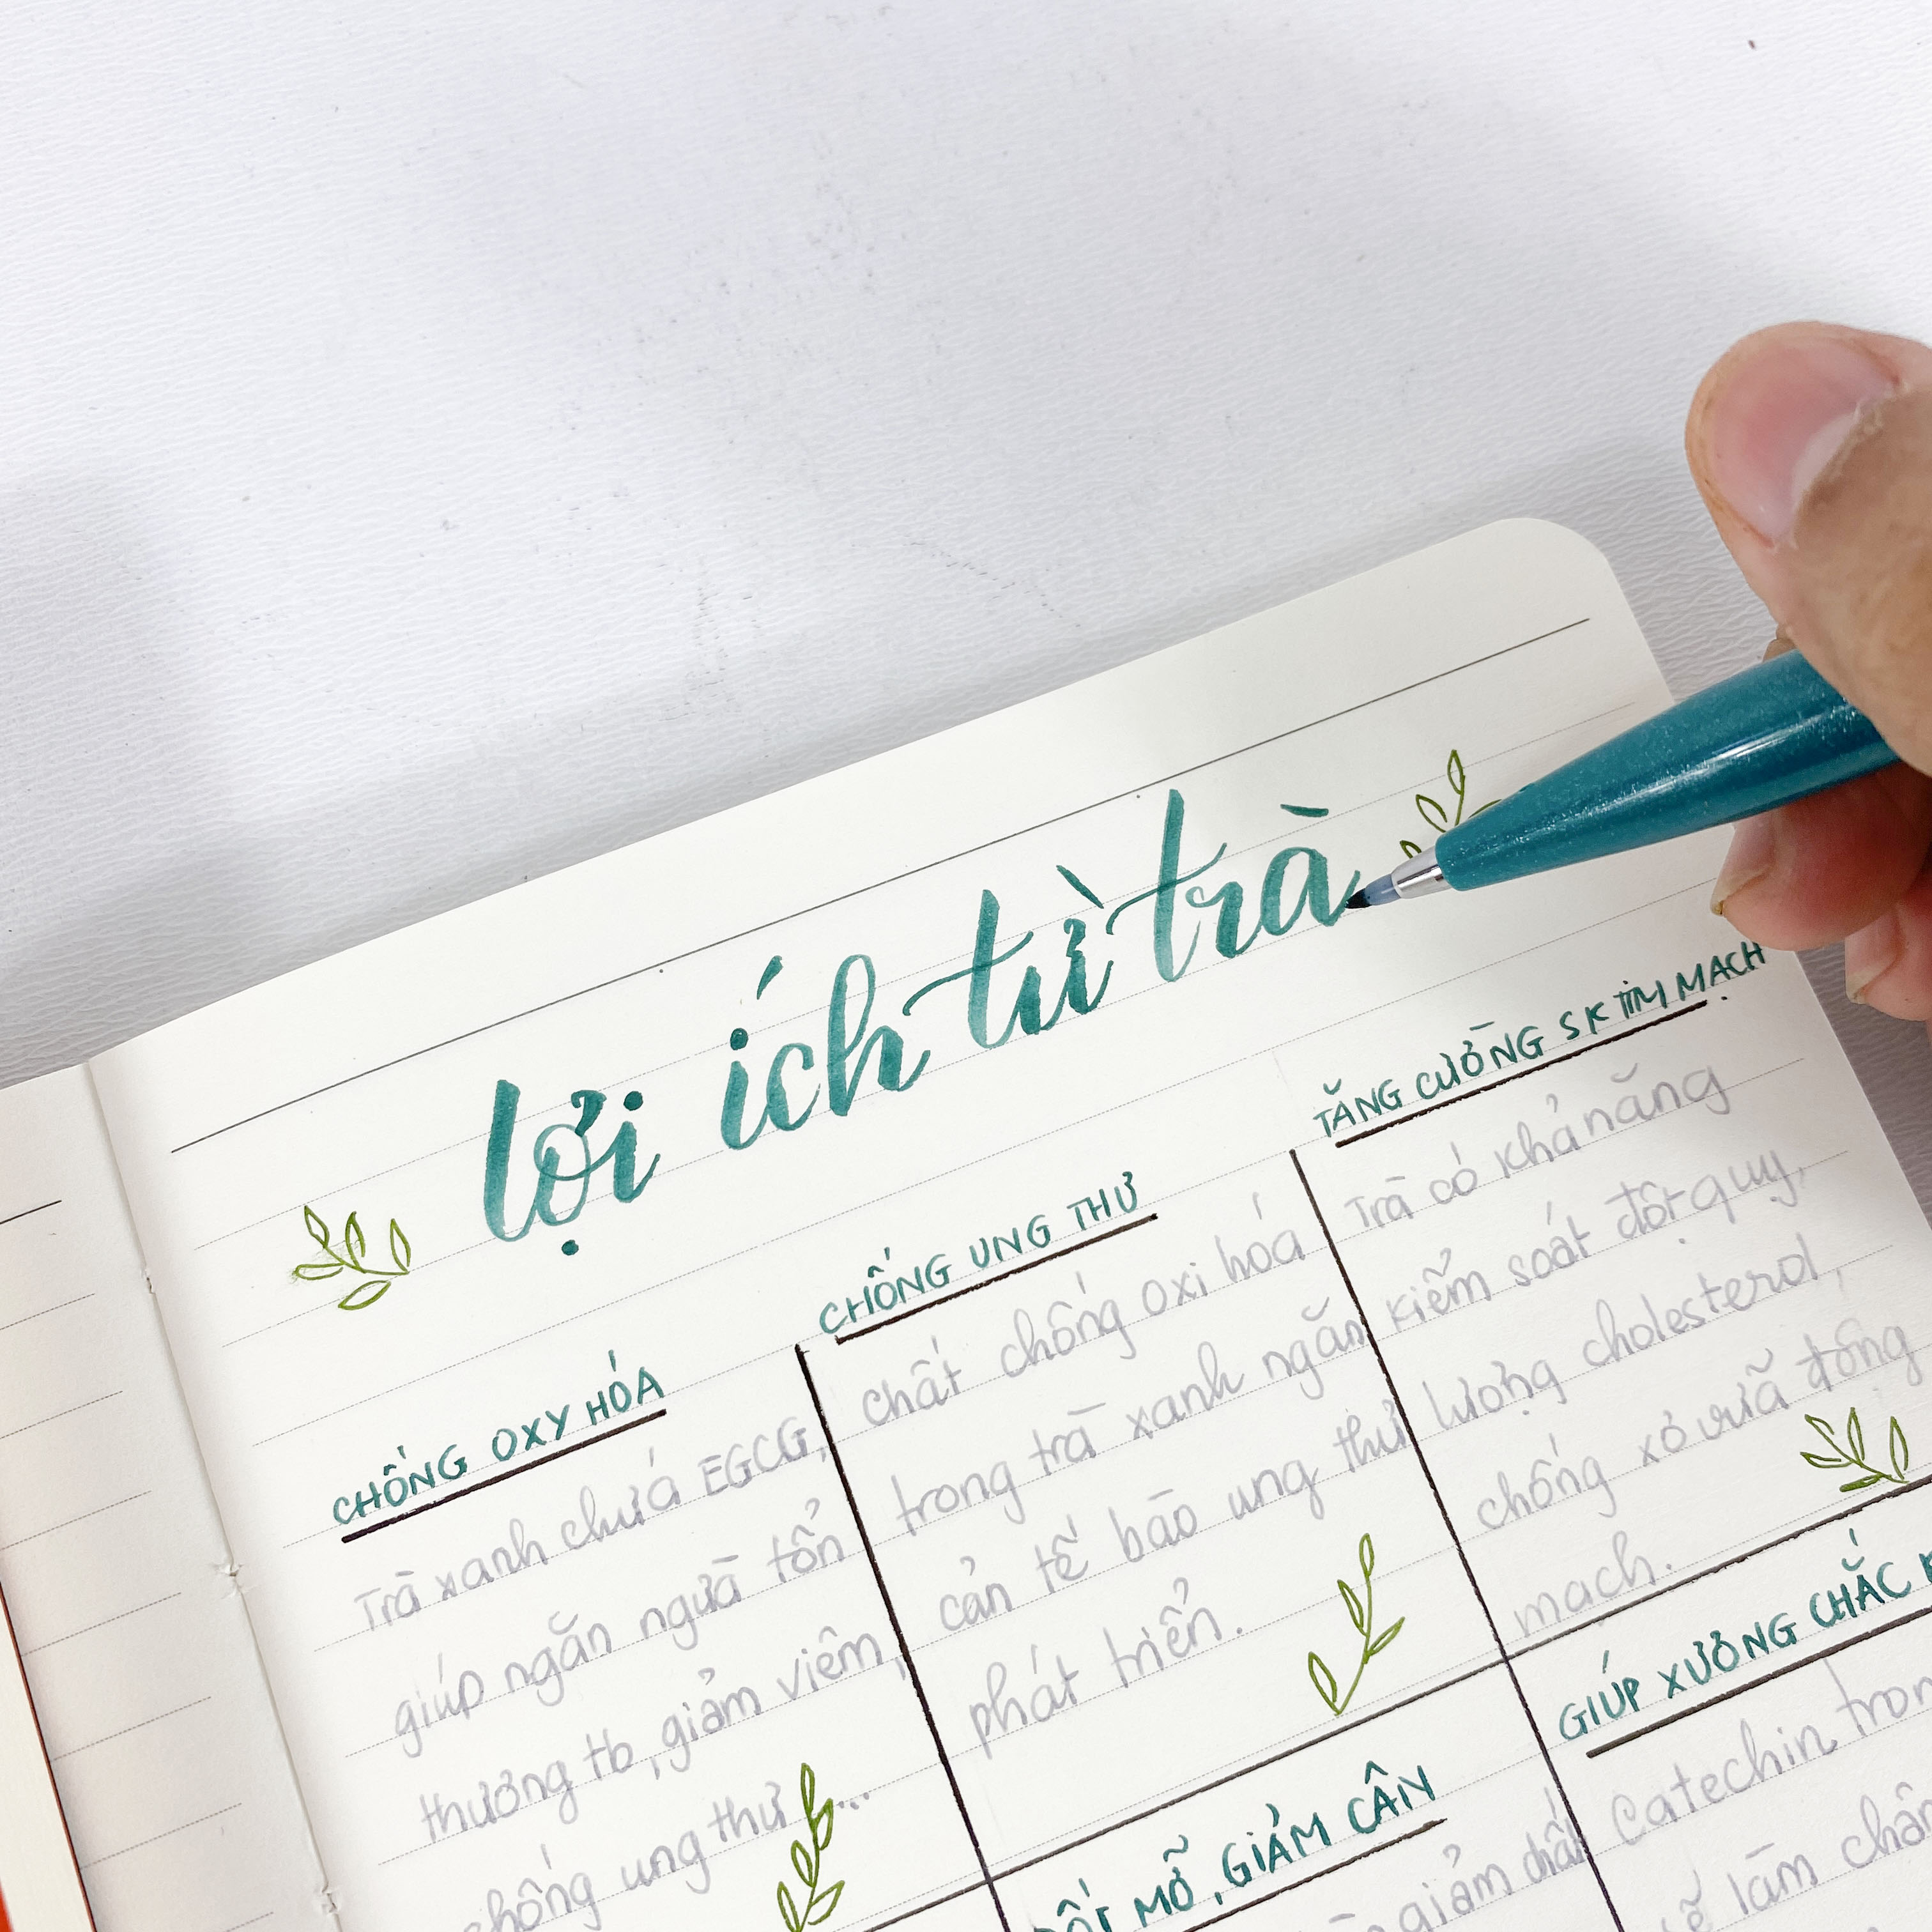 lợi ích từ trà
CHỐNG OXY HÓA
Trà xanh chứa EGCG,
giúp ngăn ngừa tổn
thương tb, giảm viêm,
chống ung thư ...
CHỐNG UNG THƯ
chất chống oxi hóa
trong trà xanh ngăn
cản tế bào ung thư
phát triển.
TĂNG CƯỜNG SK TIM MẠCH
Trà có khả năng
kiểm soát đột quỵ,
lượng cholesterol,
chống xơ vữa động
mạch.
MỠ, GIẢM CÂN
giảm
GIÚP XƯƠNG CHẮC
Catechin
làm